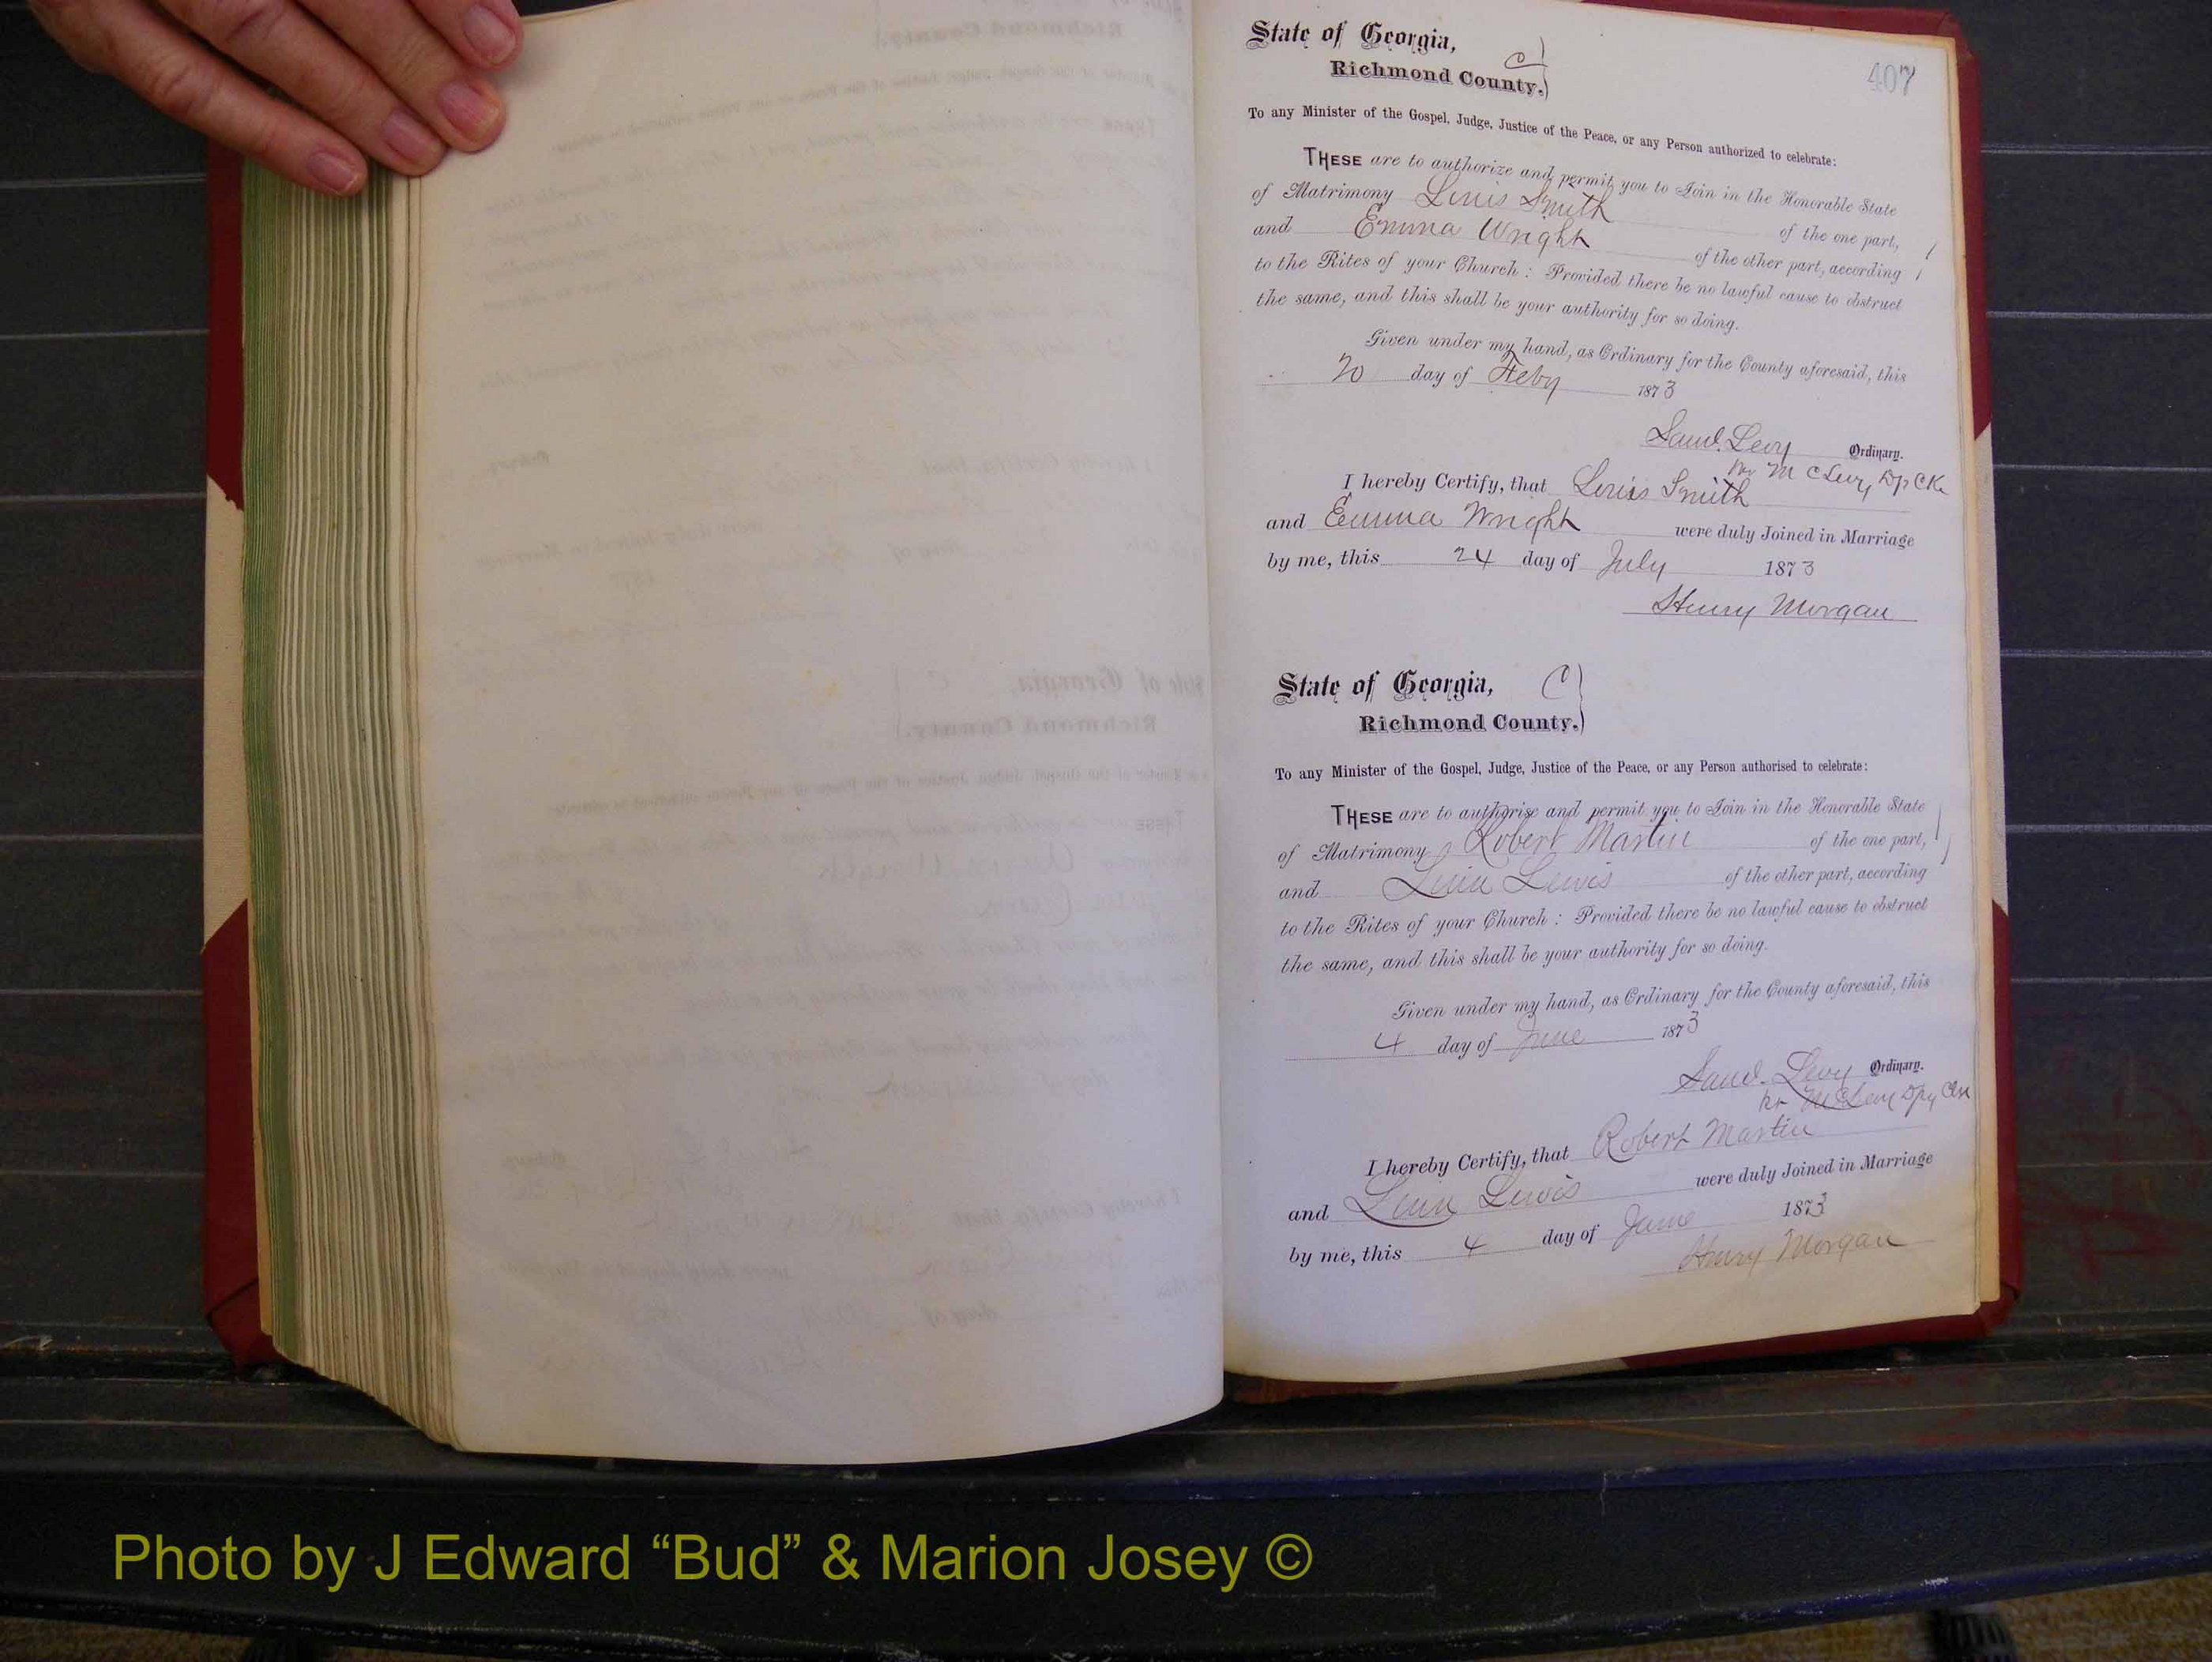 407
State of Georgia, C
Richmond County.
To any Minister of the Gospel, Judge, Justice of the Peace, or any Person authorized to celebrate:
THESE are to authorize and permit you to Join in the Honorable State
of Matrimony Louis Smith of the one part,
and Emma Wright of the other part, according
to the Rites of your Church: Provided there be no lawful cause to obstruct
the same, and this shall be your authority for so doing.
Given under my hand, as Ordinary for the County aforesaid, this
20 day of Feby 1873
Saml. Levy Ordinary.
M C Levy, Dp Ck
I hereby Certify, that Louis Smith
and Emma Wright were duly Joined in Marriage
by me, this 24 day of July 1873
Henry Morgan
State of Georgia, C
Richmond County.
To any Minister of the Gospel, Judge, Justice of the Peace, or any Person authorised to celebrate:
THESE are to authorise and permit you to Join in the Honorable State
of Matrimony Robert Martin of the one part,
and Lewis of the other part, according
to the Rites of your Church: Provided there be no lawful cause to obstruct
the same, and this shall be your authority for so doing.
Given under my hand, as Ordinary for the County aforesaid, this
4 day of June 1873
Saml. Levy Ordinary.
M C Levy Dpy Clk
I hereby Certify, that Robert Martin
and Lewis were duly Joined in Marriage
by me, this 4 day of June 1873
Henry Morgan
Photo by J Edward “Bud” & Marion Josey ©